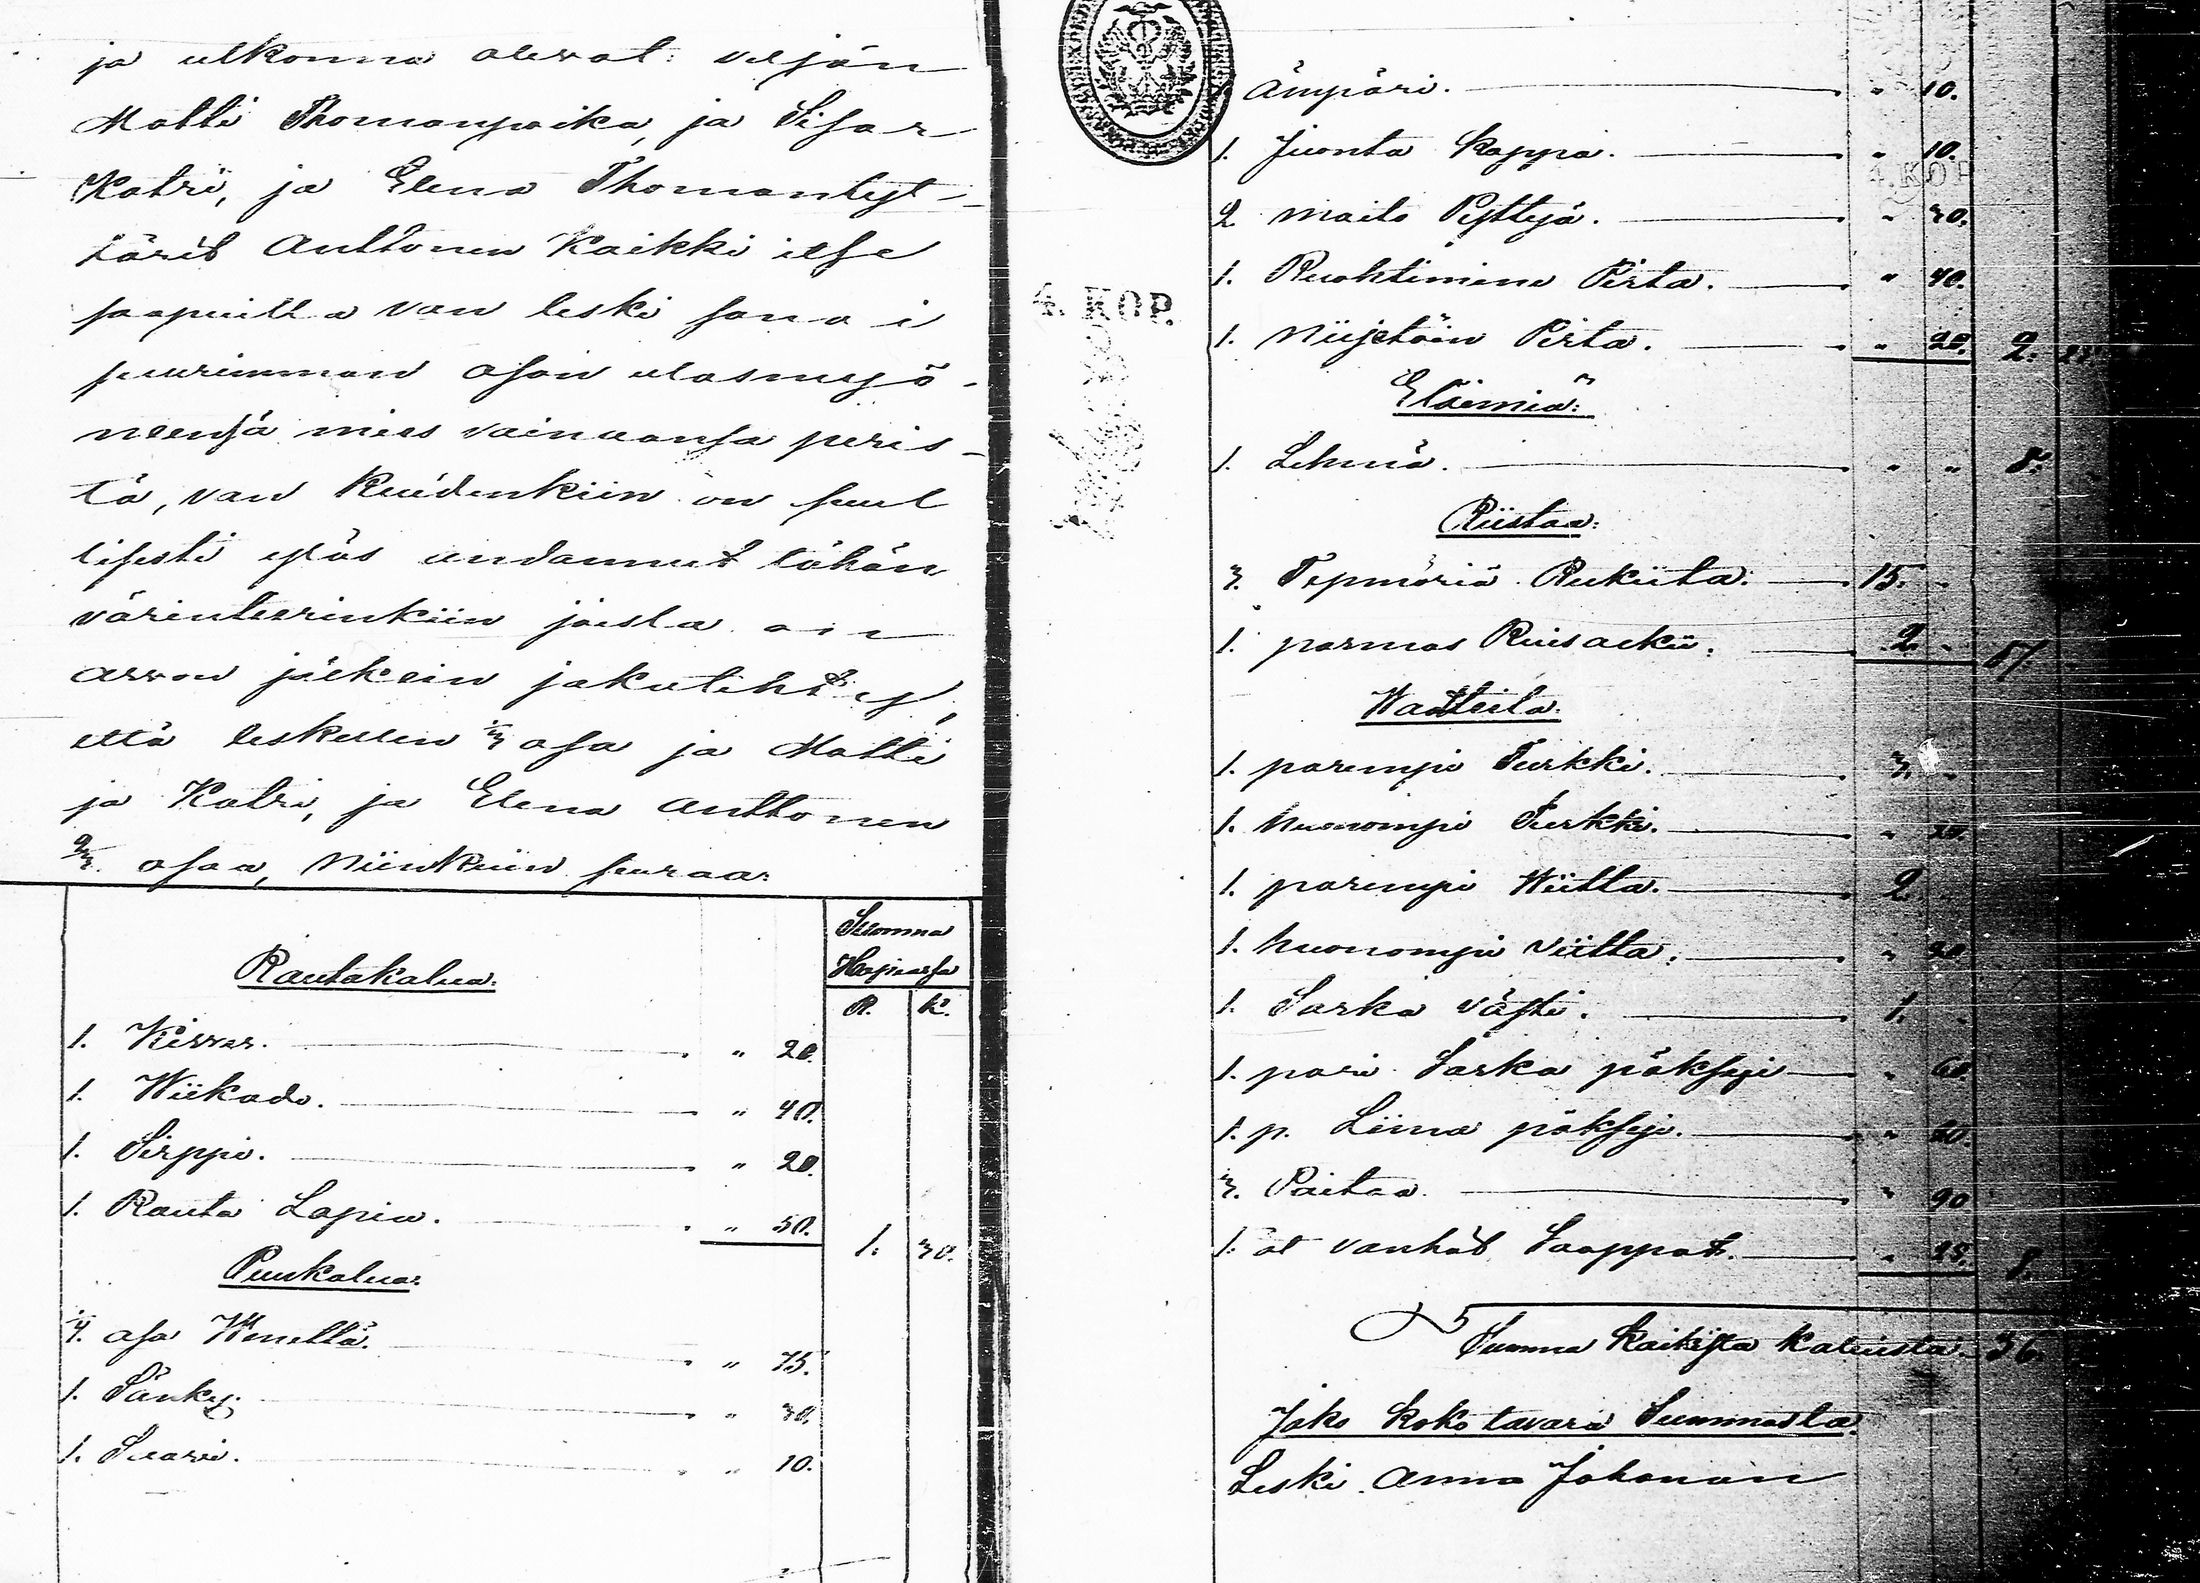 ja ulkonna olewat: veljän
Matti Thomanpoika, ja Sisar
Katri, ja Elena Thomantyt-
tärit Anttonen Kaikki itse
saapuilla van leski sanoi
suurimman osan ulosmyö-
neensä mies vainaansa peris-
tä, van Kuidenkiin on suul
lisesti ylös andannut tähän
värinteerinkiin joista on
arvon jälkein jakutehty,
että leskellen 1/3 osa ja Matti
ja Katri, ja Elena Anttonen
2/3. osaa, Niinkuin seuraa:
Summa
Hopiassa
Rautakalua:
R. K.
1. Kirves. " 20.
1. Wiikade. " 40.
1. Sirppi. " 20.
1. Rauta Lapia. " 50. 1. 30.
Puukalua:
1/4. osa Wenettä. " 75.
1. Sänky. " 30.
1. Saavi. " 10.
4. KOP.
1. Ämpäri. " 10.
1. Juonta Kappa. " 10.
4. KOP
2 maito Pyttyä. " 30.
1. Ruohtimine Pirta. " 40.
1. Niijetöin Pirta. " 2.
Eläimiä:
1. Lehmä. " " 8.
Riistaa:
3. Tynnöriä Rukiita. 15. "
1. parmas Ruisaekii. 2. "
Waatteita:
1. parempi Turkki. 3. "
1. huonompi Turkki. "
1. parempi Wiitta. 2
1. huonompi Viitta. "
1. Sarka västi. 1. "
1. pari Sarka pöksyji " 60.
1. p. Liina pöksyji. "
3. Paitaa. " 90
1. at vanhat Saappat. " 25.
Summa Kaikista kaluista. 36.
Jako koko tavara Summasta.
Leski Anna Johanan